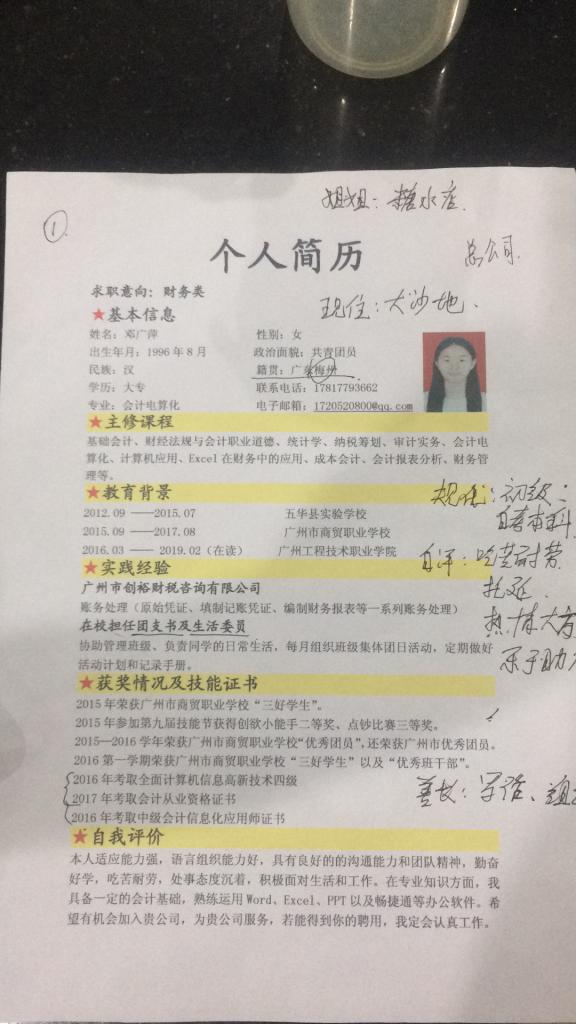 姐姐：糖水店.
①
个人简历
总公司.
求职意向：财务类
现住：大沙地.
★基本信息
姓名：邓广萍 性别：女
出生年月：1996 年 8 月 政治面貌：共青团员
民族：汉 籍贯：广东梅州
学历：大专 联系电话：17817793662
专业：会计电算化 电子邮箱：1720520800@qq.com
★主修课程
基础会计、财经法规与会计职业道德、统计学、纳税筹划、审计实务、会计电
算化、计算机应用、Excel 在财务中的应用、成本会计、会计报表分析、财务管
理等。
★教育背景
规划：初级：
2012.09 ——2015.07 五华县实验学校
自考本科.
2015.09 ——2017.08 广州市商贸职业学校
2016.03 —— 2019.02（在读） 广州工程技术职业学院
自评：吃苦耐劳.
★实践经验
广州市创裕财税咨询有限公司
托延.
账务处理（原始凭证、填制记账凭证、编制财务报表等一系列账务处理）
在校担任团支书及生活委员
热情大方
协助管理班级、负责同学的日常生活，每月组织班级集体团日活动，定期做好
活动计划和记录手册。
乐于助
★获奖情况及技能证书
2015 年荣获广州市商贸职业学校“三好学生”。
2015 年参加第九届技能节获得创欲小能手二等奖、点钞比赛三等奖。
2015—2016 学年荣获广州市商贸职业学校“优秀团员”，还荣获广州市优秀团员。
2016 第一学期荣获广州市商贸职业学校“三好学生”以及“优秀班干部”。
2016 年考取全面计算机信息高新技术四级
2017 年考取会计从业资格证书
善长：
2016 年考取中级会计信息化应用师证书
★自我评价
本人适应能力强，语言组织能力好，具有良好的的沟通能力和团队精神，勤奋
好学，吃苦耐劳，处事态度沉着，积极面对生活和工作。在专业知识方面，我
具备一定的会计基础，熟练运用 Word、Excel、PPT 以及畅捷通等办公软件。希
望有机会加入贵公司，为贵公司服务，若能得到你的聘用，我定会认真工作。